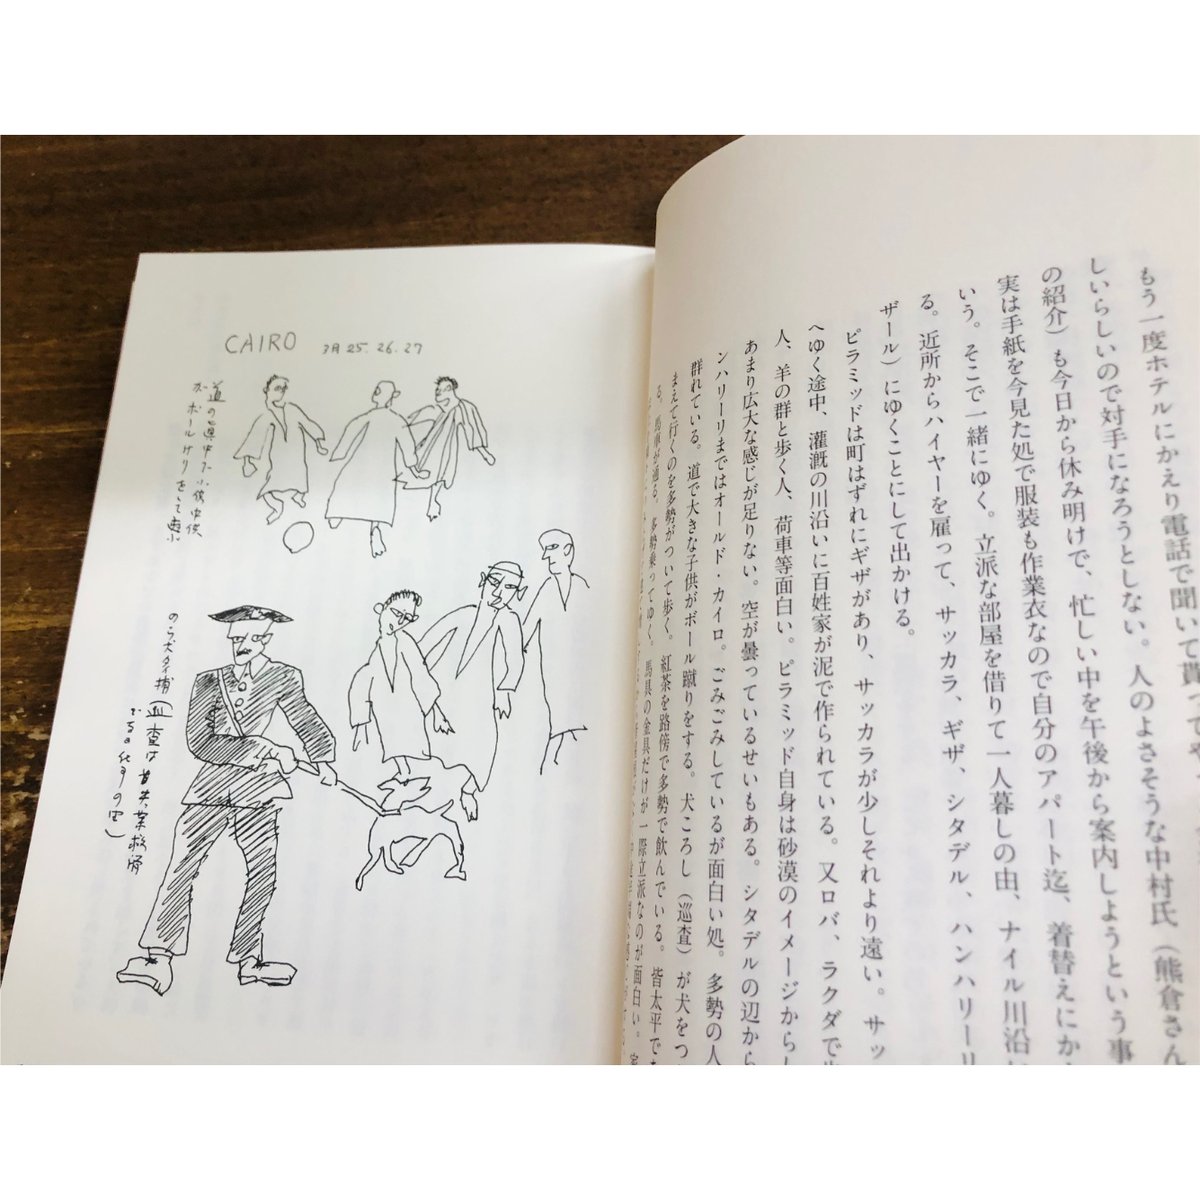 もう一度ホテルにかえり電話で聞いて貰って
しいらしいので対手になろうとしない。人のよさそうな中村氏（熊倉さん
の紹介）も今日から休み明けで、忙しい中を午後から案内しようという事
実は手紙を今見た処で服装も作業衣なので自分のアパート迄、着替えにか
いう。そこで一緒にゆく。立派な部屋を借りて一人暮しの由、ナイル川沿
る。近所からハイヤーを雇って、サッカラ、ギザ、シタデル、ハンハリーリ
ザール）にゆくことにして出かける。
ピラミッドは町はずれにギザがあり、サッカラが少しそれより遠い。サッ
へゆく途中、灌漑の川沿いに百姓家が泥で作られている。又ロバ、ラクダで
人、羊の群と歩く人、荷車等面白い。ピラミッド自身は砂漠のイメージからし
あまり広大な感じが足りない。空が曇っているせいもある。シタデルの辺から
ンハリーリまではオールド・カイロ。ごみごみしているが面白い処。多勢の人
群れている。道で大きな子供がボール蹴りをする。犬ころし（巡査）が犬をつ
まえて行くのを多勢がついて歩く。紅茶を路傍で多勢で飲んでいる。皆太平で
る。馬車が通る。多勢乗ってゆく。馬具の金具だけが一際立派なのが面白い。
CAIRO 3月25.26.27
道の真中で小供中供
ガ ボールけりをして遊ぶ
のら犬タイ捕（巡査は皆失業救済
である
の由）